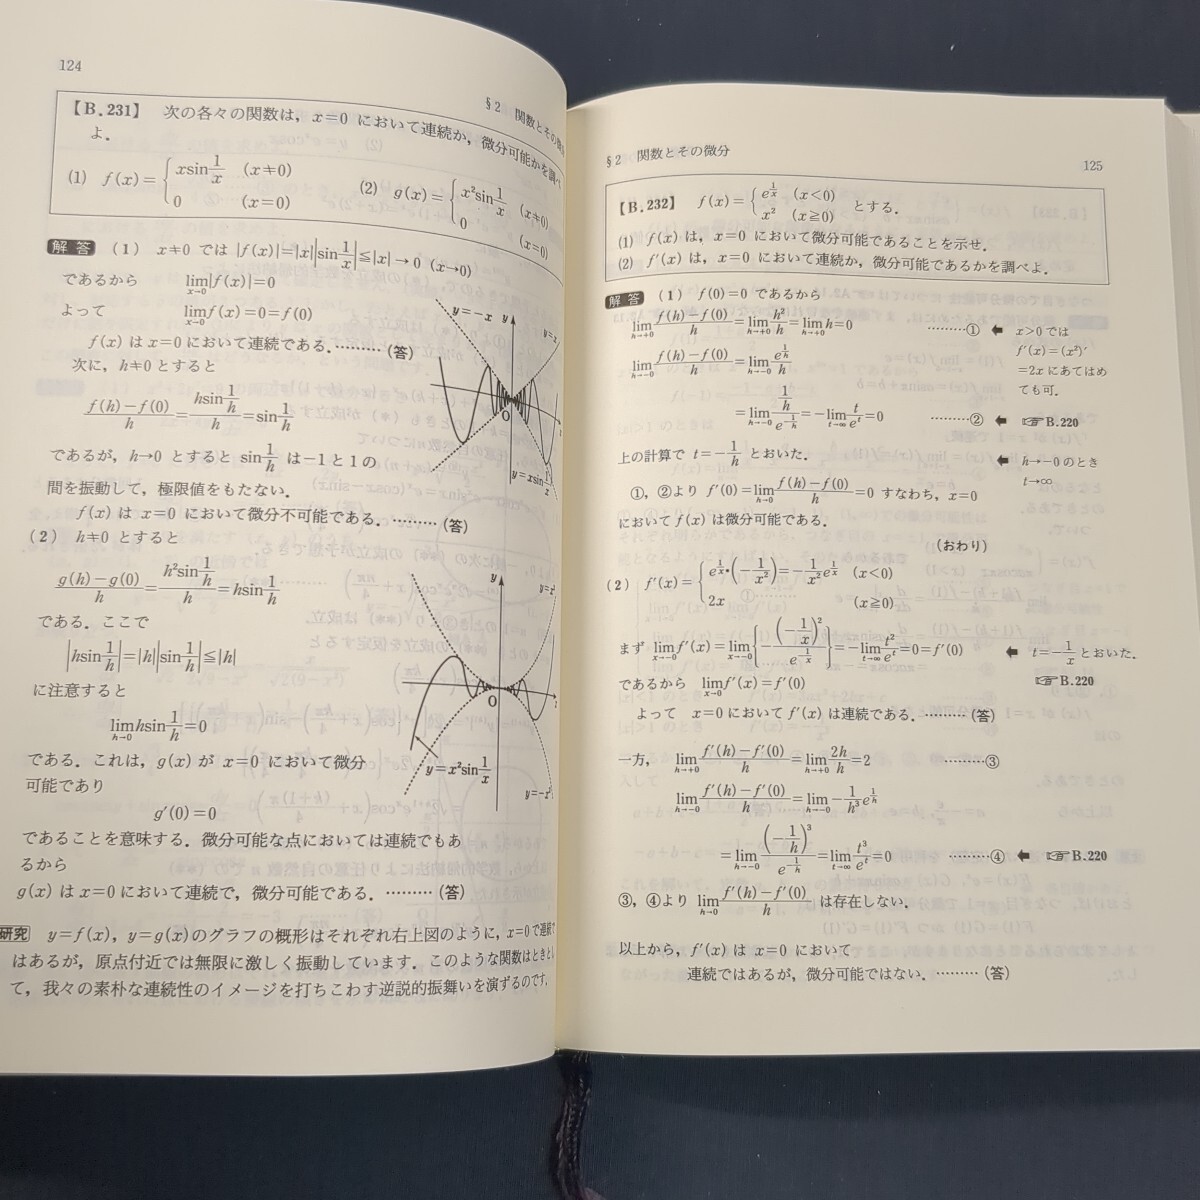 124
§2 関数とその微
【B.231】 次の各々の関数は，x=0 において連続か，微分可能かを調べ
よ．
(1) f(x)={ xsin 1/x (x≠0)
0 (x=0)
(2) g(x)={ x²sin 1/x (x≠0)
0 (x=0)
解答 (1) x≠0 では |f(x)|=|x||sin 1/x|≦|x|→0 (x→0)
であるから lim_{x→0}|f(x)|=0
よって lim_{x→0} f(x)=0=f(0)
f(x) は x=0 において連続である．………(答)
次に，h≠0 とすると
(f(h)−f(0))/h = (hsin 1/h)/h = sin 1/h
であるが，h→0 とすると sin 1/h は−1 と 1 の
間を振動して，極限値をもたない．
f(x) は x=0 において微分不可能である．………(答)
y=−x y y=x
O
y=xsin 1/x
(2) h≠0 とすると
(g(h)−g(0))/h = (h²sin 1/h)/h = hsin 1/h
である．ここで
|hsin 1/h|=|h||sin 1/h|≦|h|
に注意すると
lim_{h→0} hsin 1/h=0
である．これは，g(x) が x=0 において微分
可能であり
g′(0)=0
であることを意味する．微分可能な点においては連続でもあ
るから
g(x) は x=0 において連続で，微分可能である．………(答)
y
O
y=x²sin 1/x
y=−x²
研究 y=f(x)，y=g(x)のグラフの概形はそれぞれ右上図のように，x=0で連続で
はあるが，原点付近では無限に激しく振動しています．このような関数はときとし
て，我々の素朴な連続性のイメージを打ちこわす逆説的振舞いを演ずるのです．
§2 関数とその微分
125
【B.232】 f(x)={ e^{1/x} (x<0)
x² (x≧0) とする．
(1) f(x) は，x=0 において微分可能であることを示せ．
(2) f′(x) は，x=0 において連続か，微分可能であるかを調べよ．
解答 (1) f(0)=0 であるから
lim_{h→+0} (f(h)−f(0))/h = lim_{h→+0} h²/h = lim_{h→+0} h=0 ………① ← x>0 では
f′(x)=(x²)′
=2x にあてはめ
ても可．
lim_{h→−0} (f(h)−f(0))/h = lim_{h→−0} e^{1/h}/h
= lim_{h→−0} (1/h)/e^{−1/h} = −lim_{t→∞} t/e^t=0 ………② ← ☞B.220
上の計算で t=−1/h とおいた． ← h→−0 のとき
t→∞
①，②より f′(0)=lim_{h→0} (f(h)−f(0))/h=0 すなわち，x=0
において f(x) は微分可能である．
(おわり)
(2) f′(x)={ e^{1/x}・(−1/x²)=−1/x² e^{1/x} (x<0)
2x (x≧0)
まず lim_{x→−0} f′(x)=lim_{x→−0}{−(−1/x)²/e^{−1/x}}=−lim_{t→∞} t²/e^t=0=f′(0) ← t=−1/x とおいた．
であるから lim_{x→0} f′(x)=f′(0) ☞B.220
よって x=0 において f′(x) は連続である．………(答)
一方， lim_{h→+0} (f′(h)−f′(0))/h = lim_{h→+0} 2h/h=2 ………③
lim_{h→−0} (f′(h)−f′(0))/h = lim_{h→−0} −1/h³ e^{1/h}
= lim_{h→−0} (−1/h)³/e^{−1/h} = lim_{t→∞} t³/e^t=0 ………④ ← ☞B.220
③，④より lim_{h→0} (f′(h)−f′(0))/h は存在しない．
以上から，f′(x) は x=0 において
連続ではあるが，微分可能ではない．………(答)